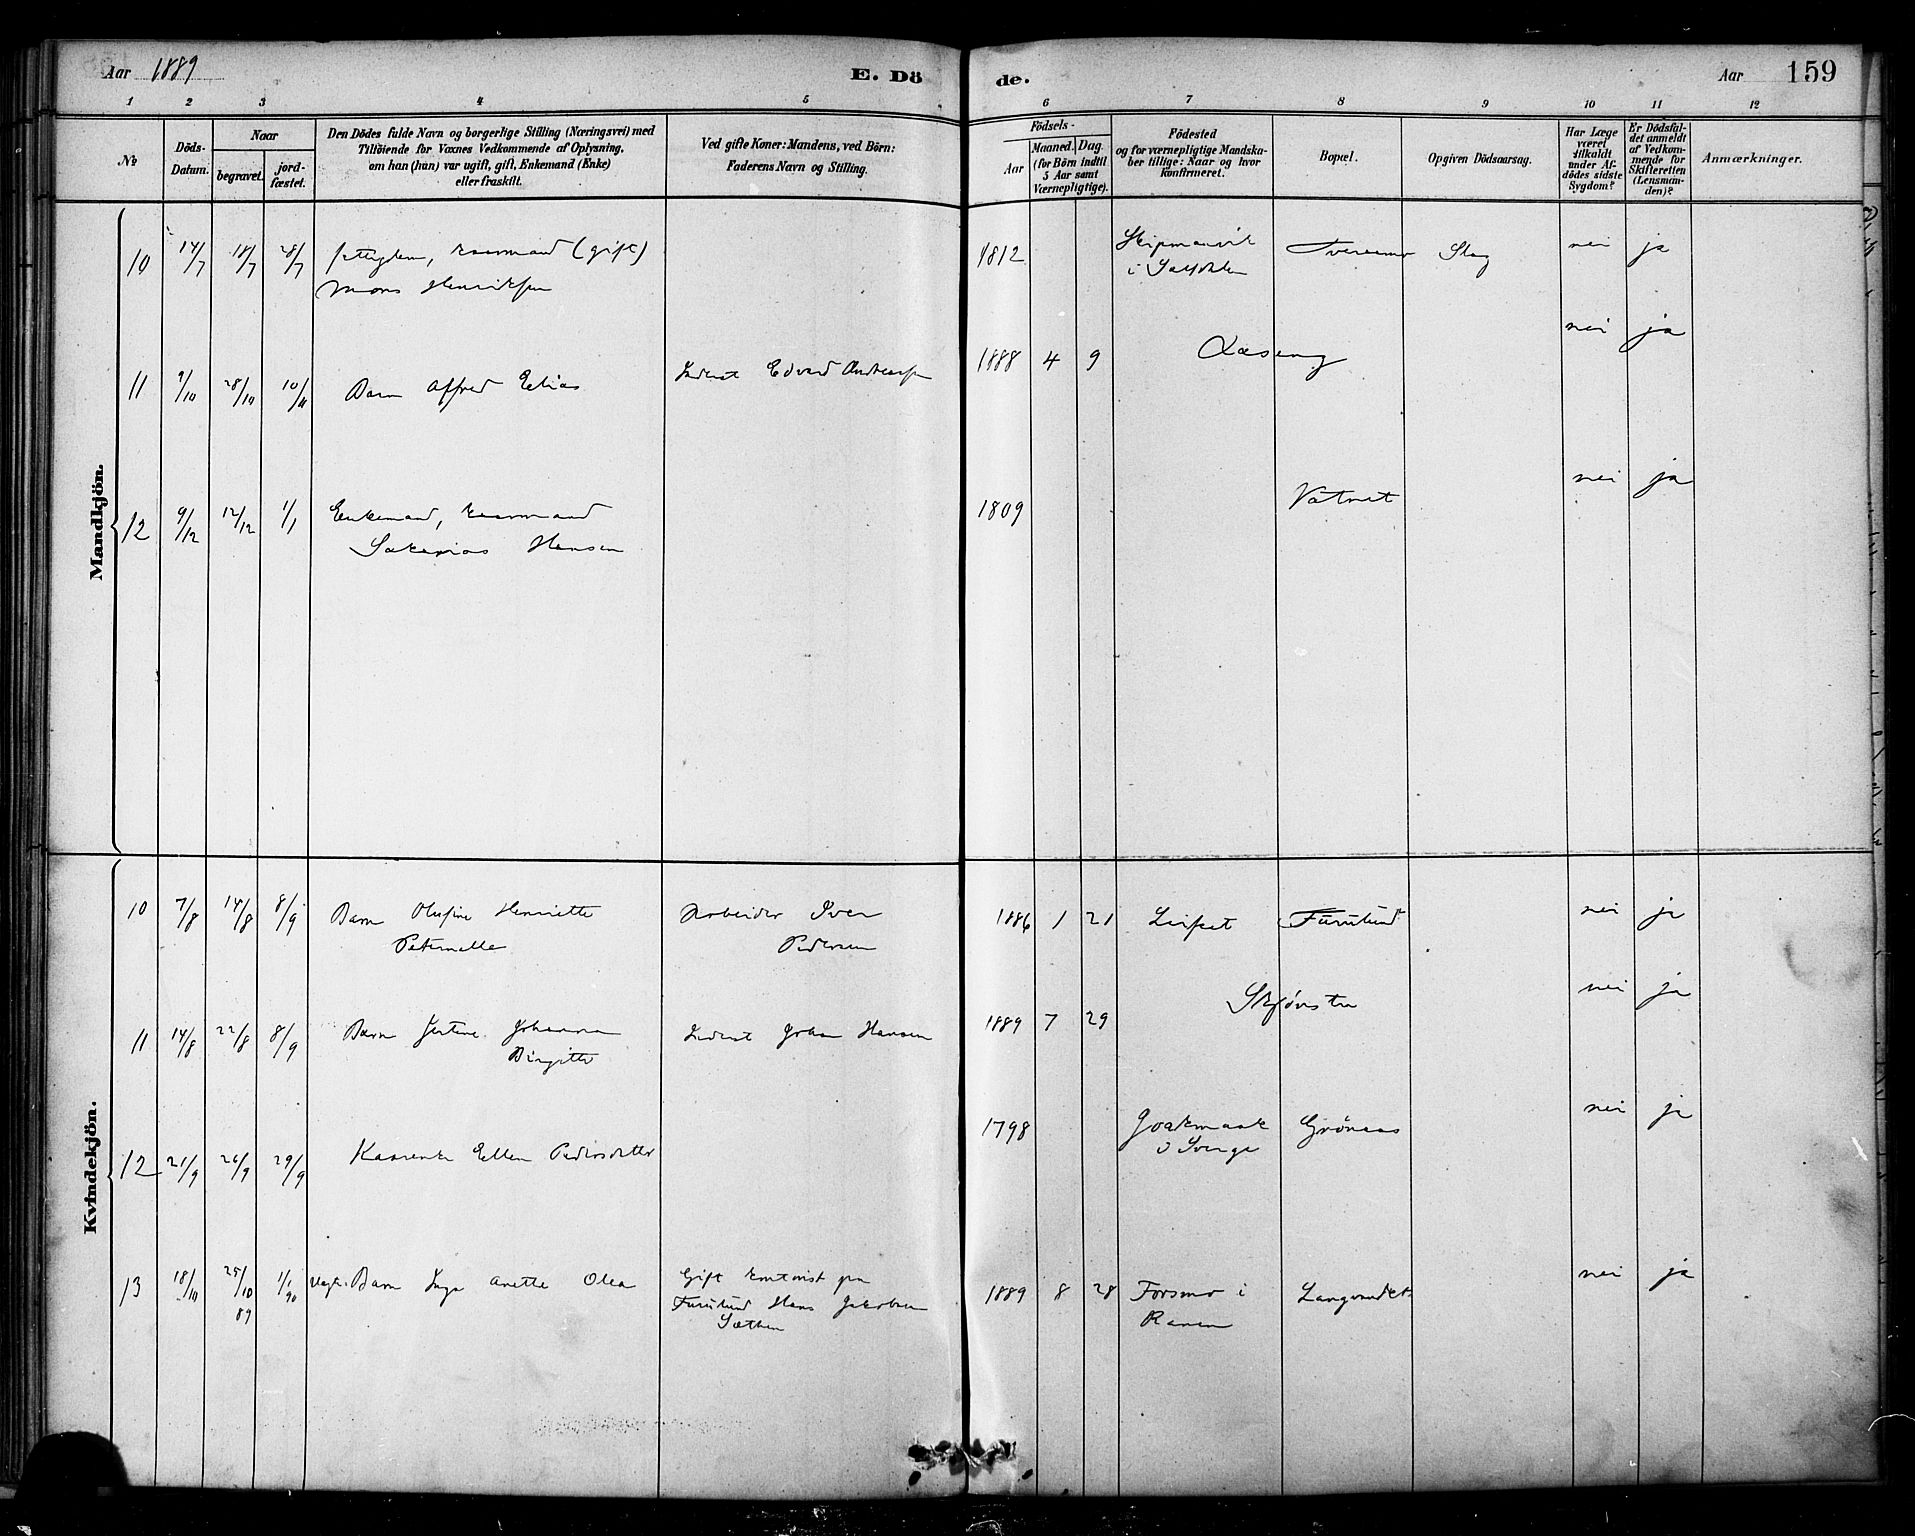 Aar 1889
E. Dö
de.
Aar
159
1 2 3 4 5 6 7 8 9 10 11 12
№
Döds-
Datum.
Naar
begravet.
jord-
fæstet.
Den Dödes fulde Navn og borgerlige Stilling (Næringsvei) med
Tilföiende for Voxnes Vedkommende af Oplysning,
om han (hun) var ugift, gift, Enkemand (Enke)
eller fraskilt.
Ved gifte Koner: Mandens, ved Börn:
Faderens Navn og Stilling.
Födsels-
Aar
Maaned.
Dag.
(for Börn indtil
5 Aar samt
Værnepligtige).
Födested
og for værnepligtige Mandska-
ber tillige: Naar og hvor
konfirmeret.
Bopæl.
Opgiven Dödsaarsag.
Har Læge
været
tilkaldt
under Af-
dödes sidste
Sygdom?
Er Dödsfal-
det anmeldt
af Vedkom-
mende for
Skifteretten
(Lensman-
den)?
Anmærkninger.
Mandkjön.
10 14/7 18/7 28/7 (gift) 1812 nei ja
Mons Henriksen
11 9/10 28/10 10/11 Barn Alfred Elias Inderst Edvard Andreassen 1888 4 9 nei ja
12 9/12 12/12 1/1 Enkemand, 1809 Vatnet nei ja
Sakarias Hansen
Kvindekjön.
10 7/8 14/8 8/9 Barn Olufine Henriette Arbeider Iver 1886 1 21 Furulund nei ja
Peternelle Pedersen
11 14/8 22/8 8/9 Barn Justine Johanna Inderst Johan Hansen 1889 7 29 Skjönstu nei ja
Birgitte
12 21/9 26/9 29/9 Ellen Pedersdatter 1798 Jockmock Grönaas nei ja
i Sverge
13 18/10 25/10 89 1/1 90 Barn Inga Anette Olea Gift 1889 8 28 Forsmo i Langvandet nei ja
Furulund Hans Jakobsen Ranen
Sæther